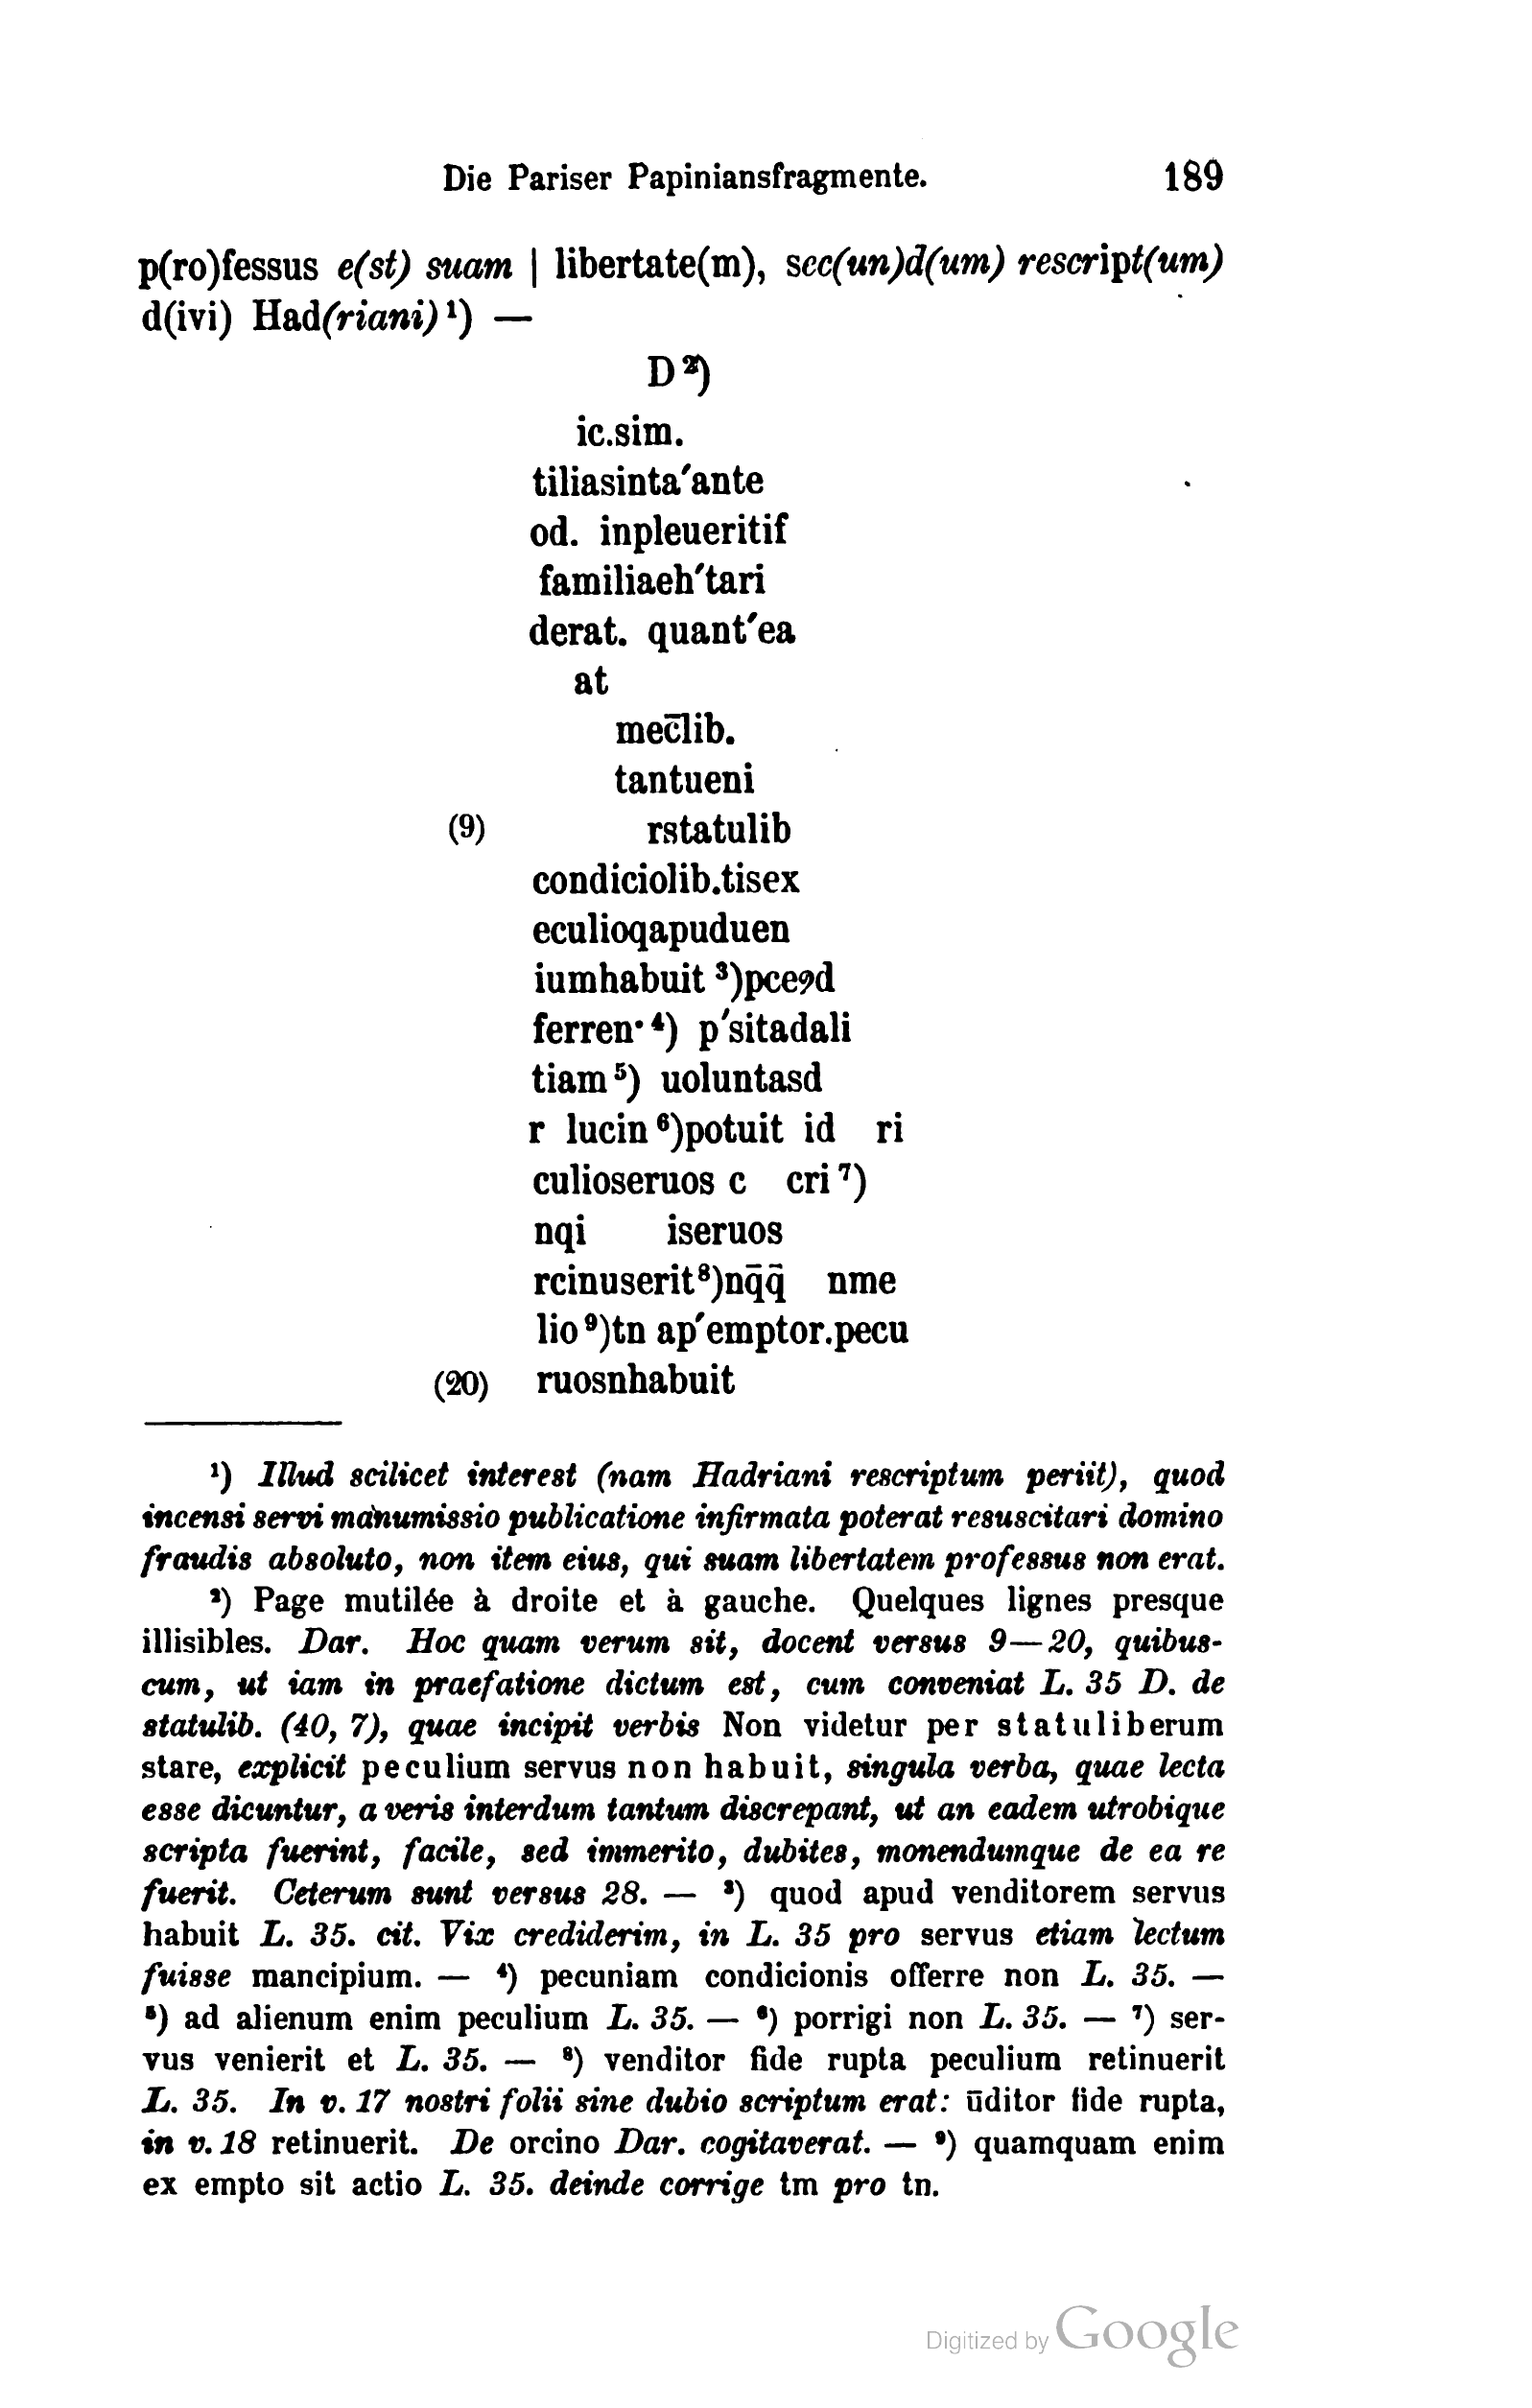 Die Pariser Papiniansfragmente. 189
p(ro)fessus e(st) suam | libertate(m), sec(un)d(um) rescript(um)
d(ivi) Had(riani) ¹) —
D ²)
ic.sim.
tiliasinta′ante
od. inpleueritif
familiaeh′tari
derat. quant′ea
at
mec̄lib.
tantueni
(9) rstatulib
condiciolib.tisex
eculioqapuduen
iumhabuit ³)pceꝯd
ferren· ⁴) p′sitadali
tiam ⁵) uoluntasd
r lucin ⁶)potuit id ri
culioseruos c cri ⁷)
nqi iseruos
rcinuserit ⁸)nq̄q̄ nme
lio ⁹)tn ap′emptor.pecu
(20) ruosnhabuit
¹) Illud scilicet interest (nam Hadriani rescriptum periit), quod
incensi servi manumissio publicatione infirmata poterat resuscitari domino
fraudis absoluto, non item eius, qui suam libertatem professus non erat.
²) Page mutilée à droite et à gauche. Quelques lignes presque
illisibles. Dar. Hoc quam verum sit, docent versus 9—20, quibus-
cum, ut iam in praefatione dictum est, cum conveniat L. 35 D. de
statulib. (40, 7), quae incipit verbis Non videtur per statuliberum
stare, explicit peculium servus non habuit, singula verba, quae lecta
esse dicuntur, a veris interdum tantum discrepant, ut an eadem utrobique
scripta fuerint, facile, sed immerito, dubites, monendumque de ea re
fuerit. Ceterum sunt versus 28. — ³) quod apud venditorem servus
habuit L. 35. cit. Vix crediderim, in L. 35 pro servus etiam lectum
fuisse mancipium. — ⁴) pecuniam condicionis offerre non L. 35. —
⁵) ad alienum enim peculium L. 35. — ⁶) porrigi non L. 35. — ⁷) ser-
vus venierit et L. 35. — ⁸) venditor fide rupta peculium retinuerit
L. 35. In v. 17 nostri folii sine dubio scriptum erat: ūditor fide rupta,
in v. 18 retinuerit. De orcino Dar. cogitaverat. — ⁹) quamquam enim
ex empto sit actio L. 35. deinde corrige tm pro tn.
Digitized by Google